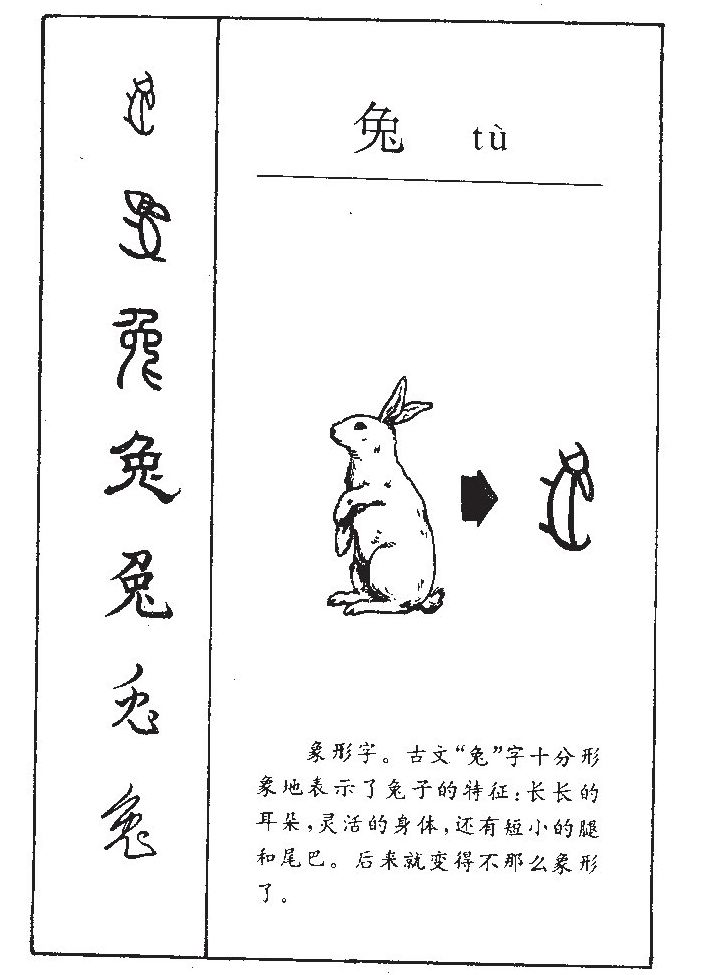 兔 tù
象形字。古文“兔”字十分形
象地表示了兔子的特征：长长的
耳朵，灵活的身体，还有短小的腿
和尾巴。后来就变得不那么象形
了。
兔
兔
兔
兔